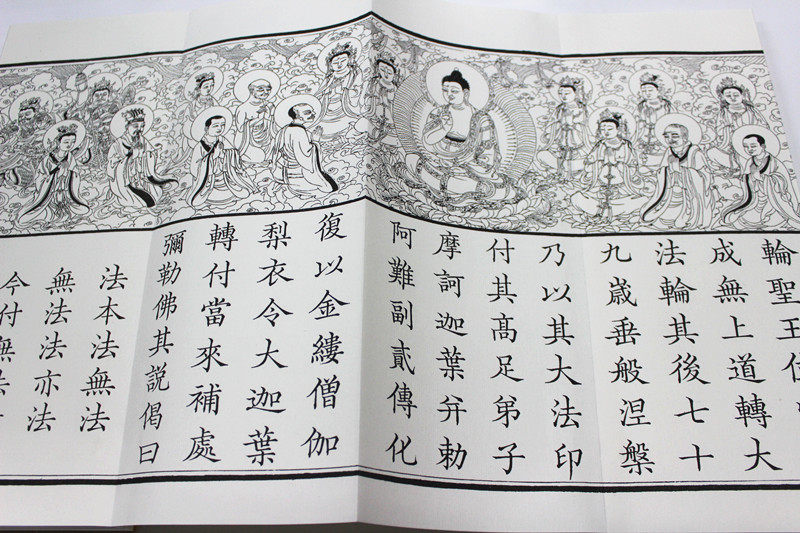 輪聖王位
成無上道轉大
法輪其後七十
九歳垂般涅槃
乃以其大法印
付其髙足弟子
摩訶迦葉并勅
阿難副貳傳化
復以金縷僧伽
梨衣令大迦葉
轉付當來補處
彌勒佛其說偈曰
法本法無法
無法法亦法
今付無法